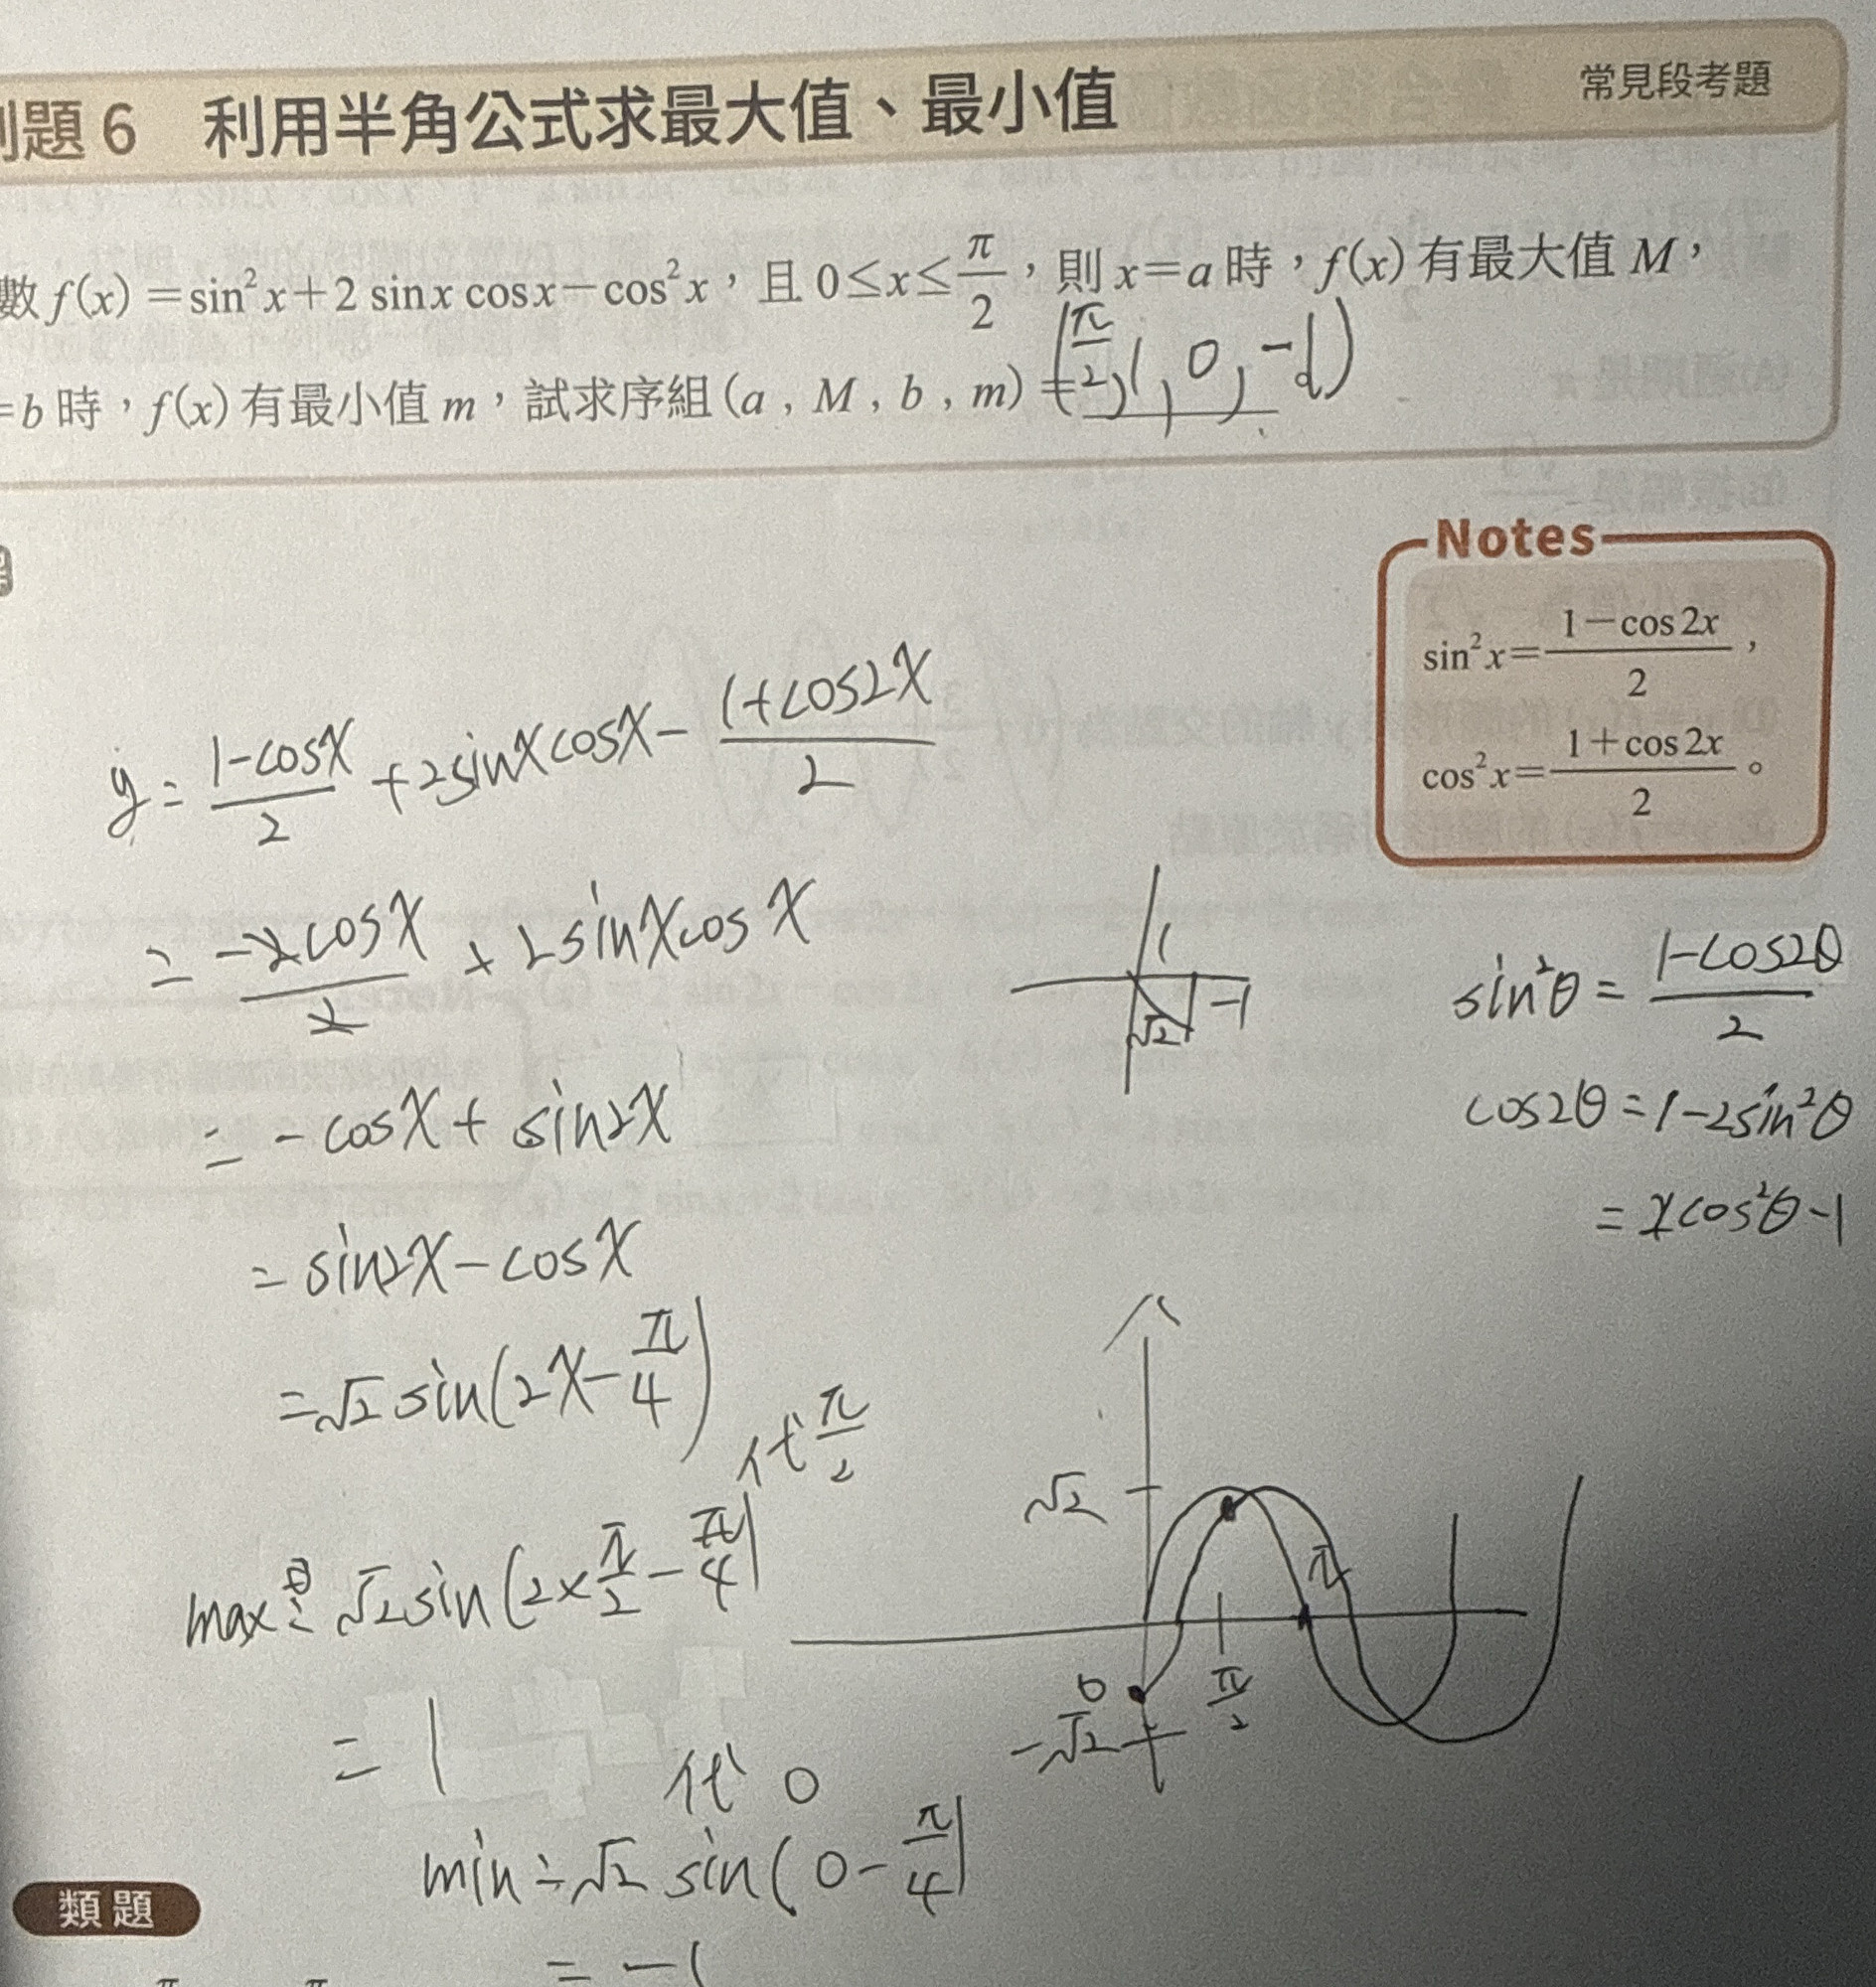 例題 6 利用半角公式求最大值、最小值 常見段考題
數 f(x)=sin²x+2 sinx cosx−cos²x,且 0≤x≤π/2,則 x=a 時,f(x) 有最大值 M,
=b 時,f(x) 有最小值 m,試求序組(a , M , b , m) = (π/2, 1, 0, -1)
Notes
sin²x=(1−cos2x)/2,
cos²x=(1+cos2x)/2。
y = (1-cosx)/2 + 2sinxcosx - (1+cos2x)/2
= (-2cosx)/2 + 2sinxcosx
= -cosx + sin2x
= sin2x - cosx
= √2 sin(2x - π/4)
代 π/2
max = √2 sin(2×π/2 - π/4)
= 1
代 0
min = √2 sin(0 - π/4)
= -1
1
-1
√2
sin²θ = (1-cos2θ)/2
cos2θ = 1-2sin²θ
= 2cos²θ-1
√2
π
0
π/2
-√2
類題